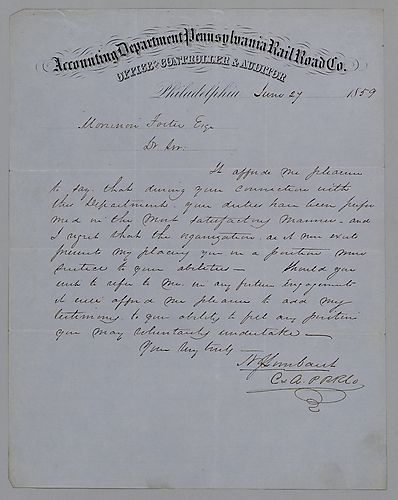 Accounting Department Pennsylvania Rail Road Co.
OFFICE OF CONTROLLER & AUDITOR
Philadelphia June 27 1859
Morrison Foster Esq
Dr Sir:
It affords me pleasure
to say, that during your connection with
this Department - your duties have been perfor
med in the most satisfactory manner - and
I regret that the organization, as it now exists
prevents my placing you in a position more
suited to your abilities — Should you
wish to refer to me, in any future engagement
it will afford me pleasure to add my
testimony, to your ability to fill any position
you may voluntarily undertake —
Your Very truly
H J Lombaert
C & A. P R R Co